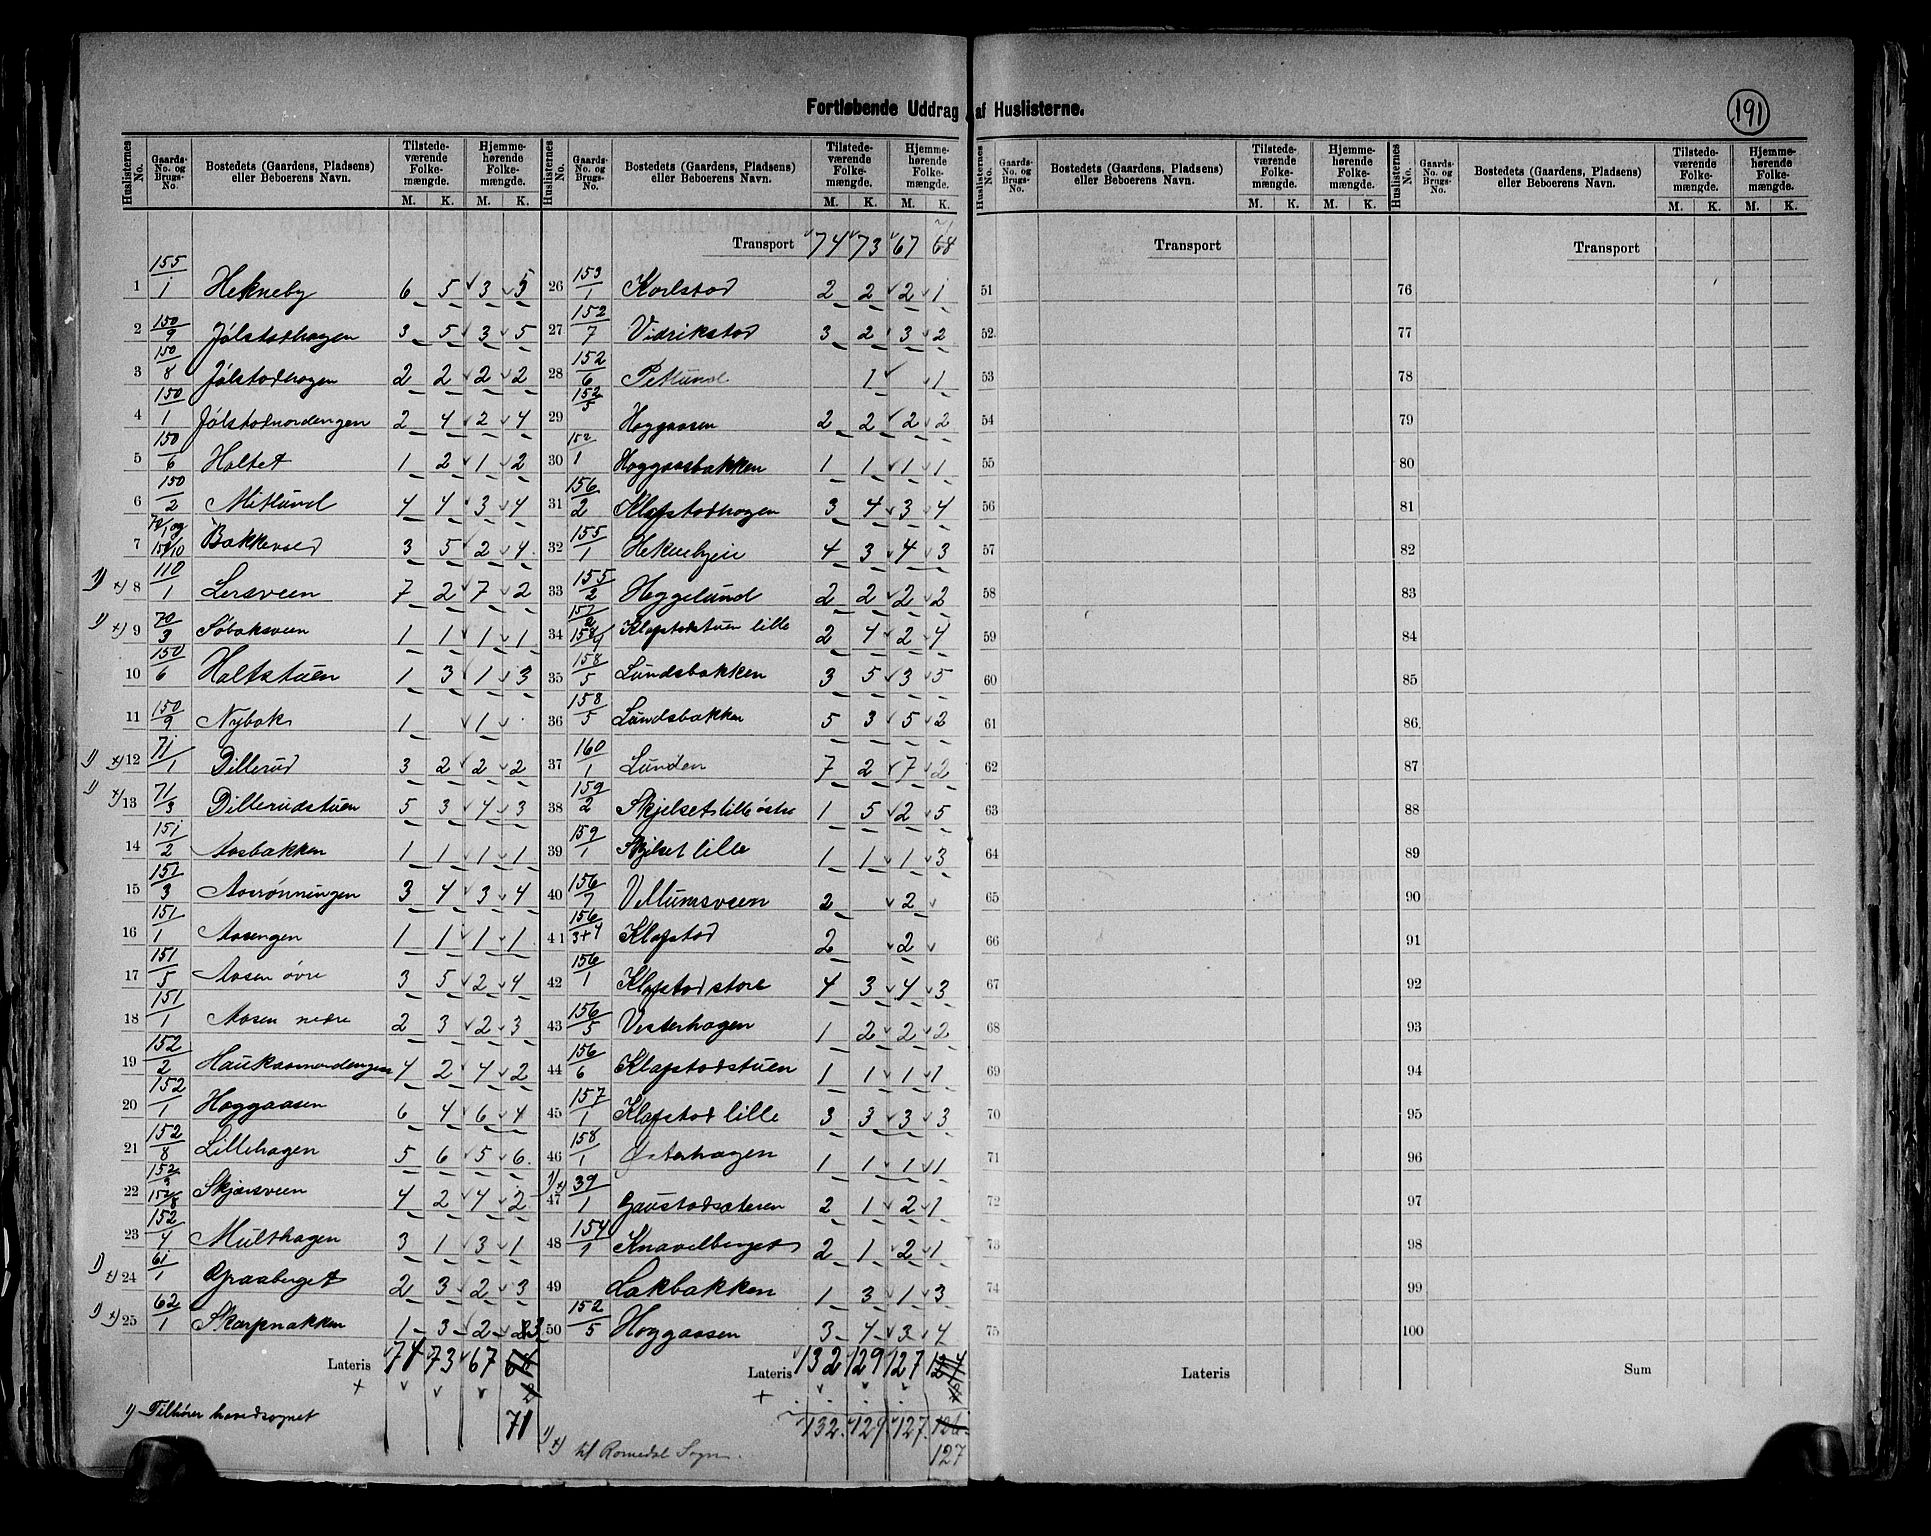 Fortløbende Uddrag af Huslisterne.
191
Huslisternes No. | Gaards-No. og Brugs-No. | Bostedets (Gaardens, Pladsens) eller Beboerens Navn. | Tilstedeværende Folkemængde. M. K. | Hjemmehørende Folkemængde. M. K.
1 155/1 Hekneby 6 5 3 5
2 150/9 Jølstadhagen 3 5 3 5
3 150/8 Jølstadhagen 2 2 2 2
4 150/1 Jølstadnordengen 2 4 2 4
5 150/6 Holtet 1 2 1 2
6 150/2 Mitlund 4 4 3 4
7 70/1 og 150/10 Bakkevold 3 5 2 4
1) x) 8 110/1 Lersveen 7 2 7 2
1) x) 9 70/3 Søbaksveen 1 1 1 1
10 150/6 Holtstuen 1 3 1 3
11 150/9 Nybak 1 1
1) x) 12 71/1 Dillerud 3 2 2 2
1) x) 13 71/3 Dillerudstuen 5 3 4 3
14 151/2 Aasbakken 1 1 1 1
15 151/3 Aasrønningen 3 4 3 4
16 151/1 Aasengen 1 1 1 1
17 151/5 Aasen øvre 3 5 2 4
18 151/1 Aasen nedre 2 3 2 3
19 152/2 Haukaasnordengen 4 2 4 2
20 152/1 Hoggaasen 6 4 6 4
21 152/8 Lillehagen 5 6 5 6
22 152/3 Skjærsveen 4 2 4 2
23 152/4 Multhagen 3 1 3 1
1) x) 24 61/1 Graaberget 2 3 2 3
1) x) 25 62/1 Skarpnakken 1 3 2 3
Lateris 74 73 67 71
+
1) Tilhører hovedsognet
Huslisternes No. | Gaards-No. og Brugs-No. | Bostedets (Gaardens, Pladsens) eller Beboerens Navn. | Tilstedeværende Folkemængde. M. K. | Hjemmehørende Folkemængde. M. K.
Transport 74 73 67 68
26 153/1 Karlstad 2 2 2 1
27 152/7 Vidrikstad 3 2 3 2
28 152/6 Petlund 1 1
29 152/5 Hoggaasen 2 2 2 2
30 152/1 Hoggaasbakken 1 1 1 1
31 156/2 Klafstadhagen 3 4 3 4
32 155/1 Heknebyeie 4 3 4 3
33 155/2 Heggelund 2 2 2 2
34 157/2 158/4 Klafstadstuen lille 2 4 2 4
35 158/5 Lundsbakken 3 5 3 5
36 158/5 Lundsbakken 5 3 5 2
37 160/1 Lunden 7 2 7 2
38 159/2 Skjelset lille østre 1 5 2 5
39 159/1 Skjelset lille 1 1 1 3
40 156/7 Vellumsveen 2 2
41 156/3+4 Klafstad 2 2
42 156/1 Klafstad store 4 3 4 3
43 156/5 Vesterhagen 1 2 2 2
44 156/6 Klafstadstuen 1 1 1 1
45 157/1 Klafstad lille 3 3 3 3
46 158/1 Østerhagen 1 1 1 1
1) x) 47 39/1 Gaustadsæteren 2 1 2 1
48 154/1 Knavelberget 2 1 2 1
49 Lakbakken 1 3 1 3
50 152/5 Hoggaasen 3 4 3 4
Lateris 132 129 127
+
132 129 127 126
127
1) x) til Romedal Sogn.
Huslisternes No. | Gaards-No. og Brugs-No. | Bostedets (Gaardens, Pladsens) eller Beboerens Navn. | Tilstedeværende Folkemængde. M. K. | Hjemmehørende Folkemængde. M. K.
Transport
51
52
53
54
55
56
57
58
59
60
61
62
63
64
65
66
67
68
69
70
71
72
73
74
75
Lateris
Huslisternes No. | Gaards-No. og Brugs-No. | Bostedets (Gaardens, Pladsens) eller Beboerens Navn. | Tilstedeværende Folkemængde. M. K. | Hjemmehørende Folkemængde. M. K.
Transport
76
77
78
79
80
81
82
83
84
85
86
87
88
89
90
91
92
93
94
95
96
97
98
99
100
Sum